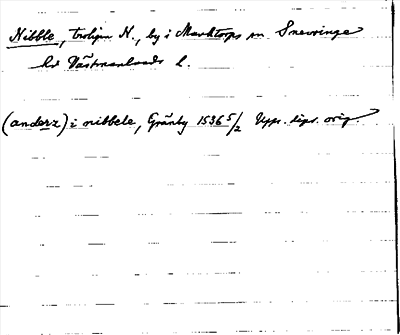 Nibble, troligen N., by i Munktorps sn. Snevringe
hd Västmanlands l.
(anderz) i nibbele, Gränby 1536 5/2 Upps. dipl. orig.